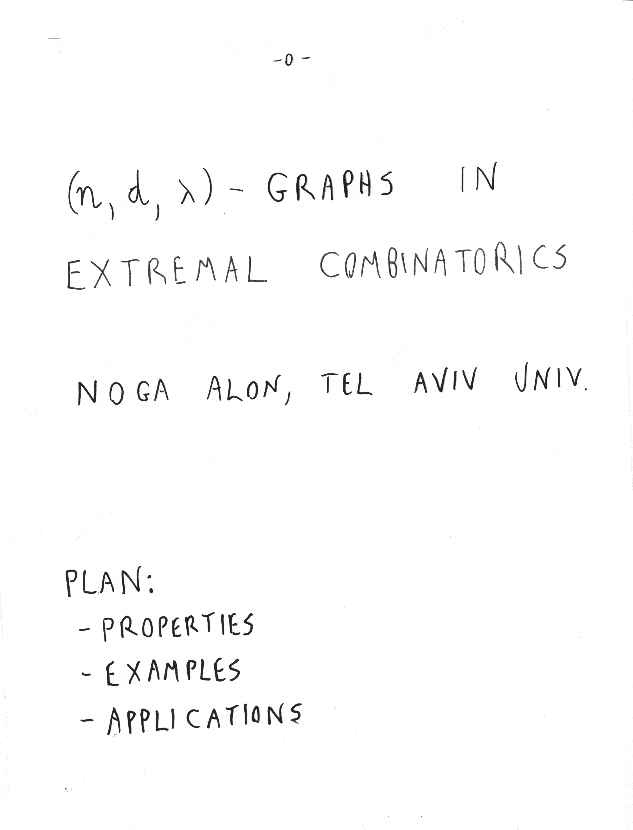 -0-
(n, d, λ) - GRAPHS IN
EXTREMAL COMBINATORICS
NOGA ALON, TEL AVIV UNIV.
PLAN:
- PROPERTIES
- EXAMPLES
- APPLICATIONS